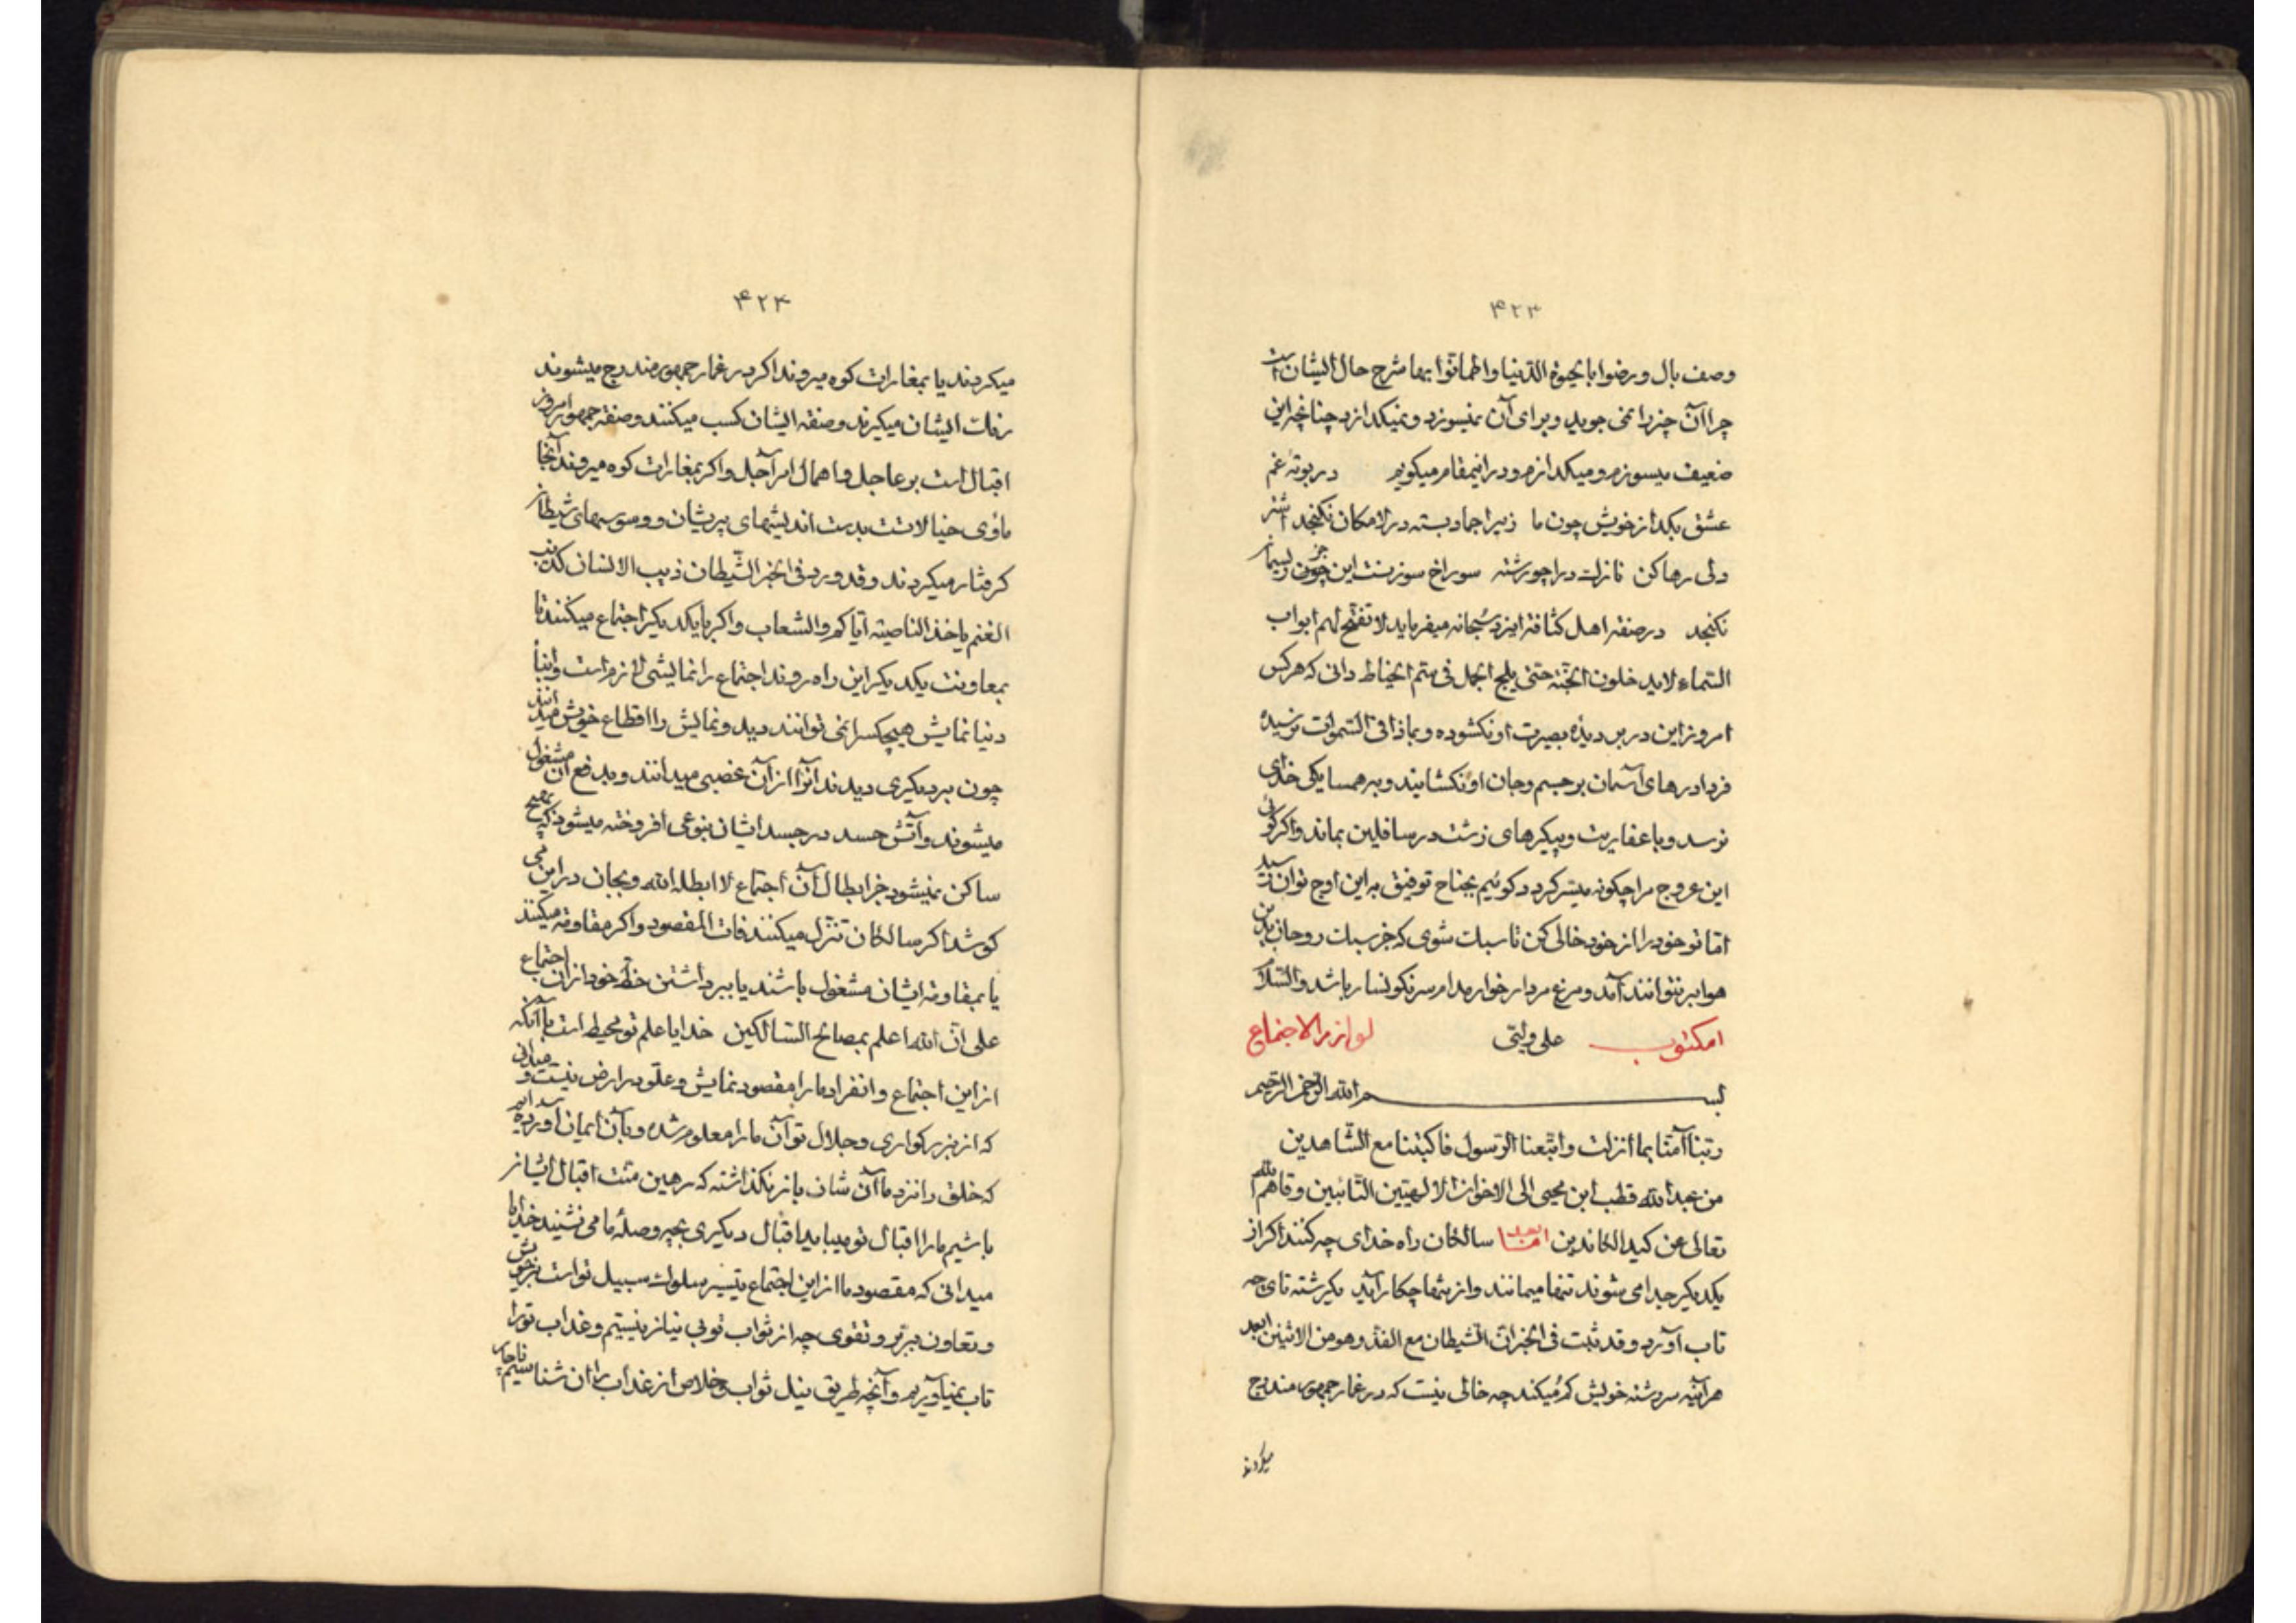 ۴۲۳
وصف بال و رضوا بالحیوة الدّنیا و اطمانّوا بها شرح حال ایشان است
چرا آن چیز را نمی جوید و برای آن نمیسوزد و نمیکدازد چنانچه این
ضعیف میسوزم و میکدازم و در اینمقام میکویم در بوتهٔ غم
عشق بکداز خویش چون ما زیرا جماد بسته در لامکان نکنجد اشتر
دلی رها کن تا زلت درا چو رشته سوراخ سوزنست این جز چون ریسمان
نکنجد در صفة اهل کثافة ایزد سُبحانه میفرماید لا تفتّح لهم ابواب
السّماء و لا یدخلون الجنّة حتی یلج الجمل فی سمّ الخیاط دانی که هر کس
امروز این در بر دیدهٔ بصیرت او نکشوده و بماذا فی السّموات نرسیده
فردا درهای آسمان بر جسم و جان او نکشایند و بهمسایکی خدای
نرسد و با عفاریت و پیکرهای زشت در سافلین بماند و اکر کوئی
این عروج مرا چکونه میسّر کردد کوئیم بجناح توفیق به این اوج توان رسید
امّا تو خود را از خود خالی کن تا سبک شوی که جز سبک روحان بدین
هوا بر نتوانند آمد و مرغ مردار خوار مدام سر نکونسار باشد والسّلام
امکتوب علی ولیّی لوازم الاجتماع
بسم الله الرّحمن الرّحیم
ربّنا آمنّا بما انزلت و اتّبعنا الرّسول فاکتبنا مع الشّاهدین
من عبدالله قطب ابن محیی الی الاخوان الالهیّین التّائبین وقاهم الله
تعالی عن کید الکائدین امّا بعد سالکان راه خدای چه کنند اکر از
یکدیکر جدا می شوند تنها میمانند و از تنها چکار آید یکرشته تا کی چه
تاب آورد و قد ثبت فی الخبر انّ الشیطان مع الفذّ و هو من الاثنین ابعد
هر آینه سر رشته خویش کم میکند چه خالی نیست که در غمار جمهور مندرج
میکردند
۴۲۴
میکردند یا بمغارات کوه میروند اکر در غمار جمهور مندرج میشوند
رنک ایشان میکیرند و صفة ایشان کسب میکنند و صفة جمهور امروز
اقبال است بر عاجل و اهمال امر آجل و اکر بمغارات کوه میروند آنجا
ماوی خیالاتست بدست اندیشهای پریشان و وسوسهای شیطان
کرفتار میکردند و قد ورد فی الخبر الشّیطان ذیب الانسان کذیب
الغنم یاخذ الناصیة ایّاکم و الشعاب و اکر با یکدیکر اجتماع میکنند تا
بمعاونت یکدیکر این راه روند اجتماع را نمایشی لازم است و ابناء
دنیا نمایش هیچکس را نمی توانند دید و نمایش را اقطاع خویش میدانند
چون بر دیکری دیدند آنرا از آن غصبی میدانند و بدفع آن مشغول
میشوند و آتش حسد در جسد ایشان بنوعی افروخته میشود که بهیچ
ساکن نمیشود جز ابطال آن اجتماع لا ابطله الله و بجان در این می
کوشند اکر سالکان تنزّل میکنند فات المقصود و اکر مقاومة میکنند
یا بمقاومة ایشان مشغول باشند یا ببرداشتن حظّ خود از آن اجتماع
علی انّ الله اعلم بمصالح السّالکین خدایا علم تو محیط است با آنکه
از این اجتماع و انفراد ما را مقصود نمایش و علوّ در ارض نیست و میدانی
که از بزرکواری و جلال تو آن ما را معلوم شده و بآن ایمان آورده ایم
که خلق را نزد ما آن شان باز نکذاشته که رهین منّت اقبال ایشان
باشیم ما را اقبال تو میباید اقبال دیکری بچه وصلهٔ ما می نشیند خدایا
میدانی که مقصود ما از این اجتماع تیسیر سلوک سبیل تو است بر خویش
و تعاون ببرّ و تقوی چه از ثواب تو بی نیاز نیستیم و عذاب تو را
تاب نمیآوریم و آنچه طریق نیل ثواب و خلاص از عذاب را ان شناسیم ناچار